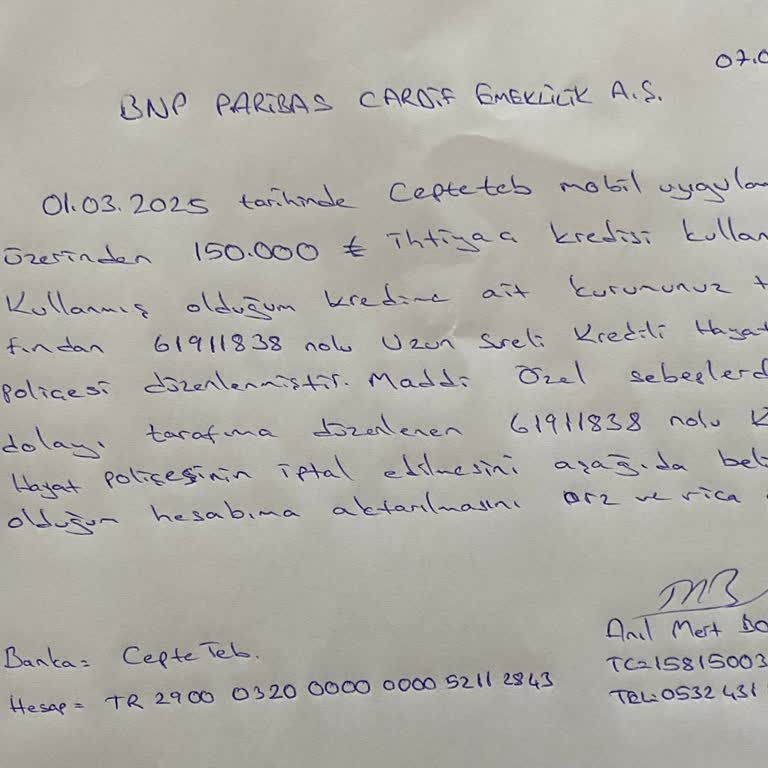 07.0
BNP PARİBAS CARDİF EMEKLİLİK A.Ş.
01.03.2025 tarihinde Cepteteb mobil uygulam
üzerinden 150.000 ₺ ihtiyaç kredisi kullan
Kullanmış olduğum kredime ait kurumunuz t
fından 61911838 nolu Uzun Süreli Kredili Hayat
poliçesi düzenlenmiştir. Maddi Özel sebeplerd
dolayı tarafıma düzenlenen 61911838 nolu K
Hayat poliçesinin iptal edilmesini aşağıda beli
olduğum hesabıma aktarılmasını arz ve rica
Anıl Mert BO
Banka= CepteTeb.
TC=15815003
Hesap= TR 2900 0320 0000 0000 5211 2843
TEL:0532 431